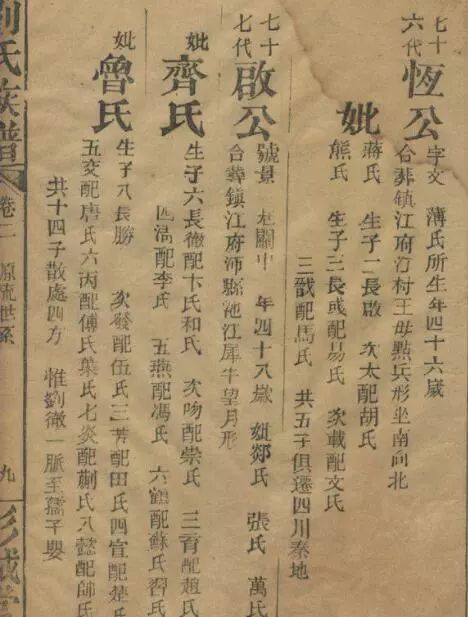 七十六代 恆公 字文 薄氏所生年四十六歲
合葬鎮江府汀村王母點兵形坐南向北
妣 蔣氏 生子二長啟 次太配胡氏
熊氏 生子三長彧配易氏 次載配文氏
三戠配馬氏 共五子俱遷四川秦地
七十七代 啟公 號景 關中 年四十八歲 妣鄒氏 張氏 萬氏
合葬鎮江府沛縣池江犀牛望月形
妣齊氏 生子六長徹配卞氏和氏 次吻配崇氏 三育配趙氏
四滈配李氏 五燕配馮氏 六顧配蘇氏習氏
妣魯氏 生子八長勝 次發配伍氏三芳配田氏四宣配楚氏
五交配唐氏六丙配傅氏葉氏七炎配蒯氏八懿配師氏
共十四子散處四方 惟劉徹一脈至孺子嬰
劉氏族譜 卷二 原流世系 九 彭城堂